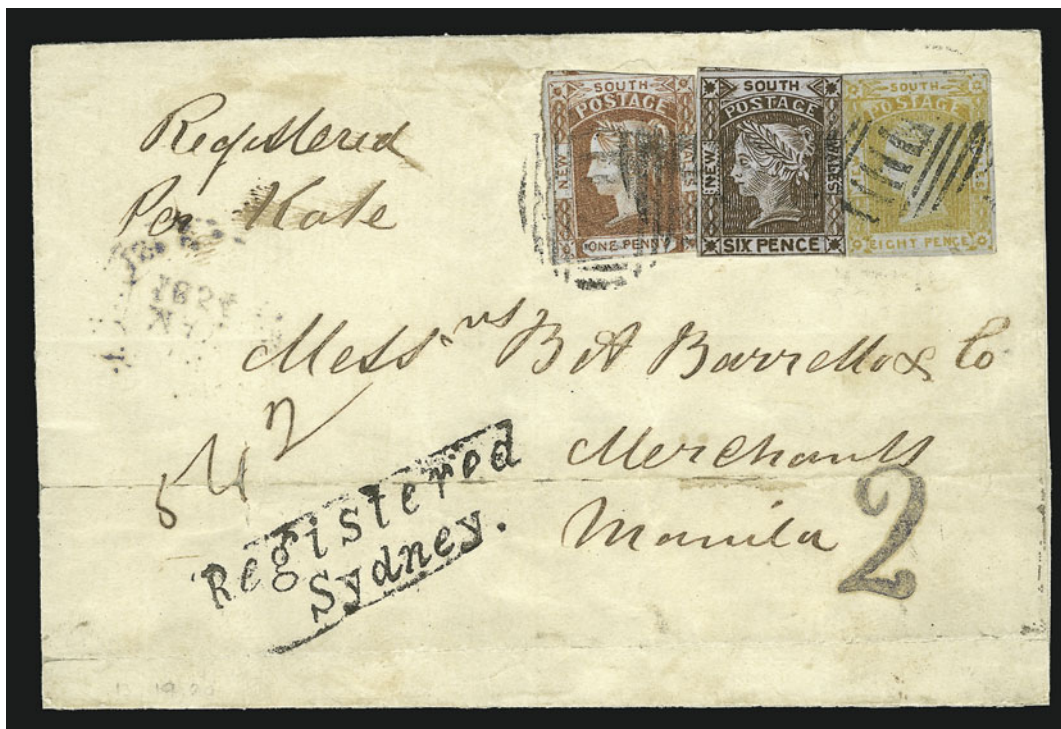 Registered
Per Kate
SOUTH
POSTAGE
NEW
WALES
ONE PENNY
SOUTH
POSTAGE
NEW
WALES
SIX PENCE
SOUTH
POSTAGE
EIGHT PENCE
1854
Messrs B A Barretto & Co
Merchants
Manila
2
Registered
Sydney.